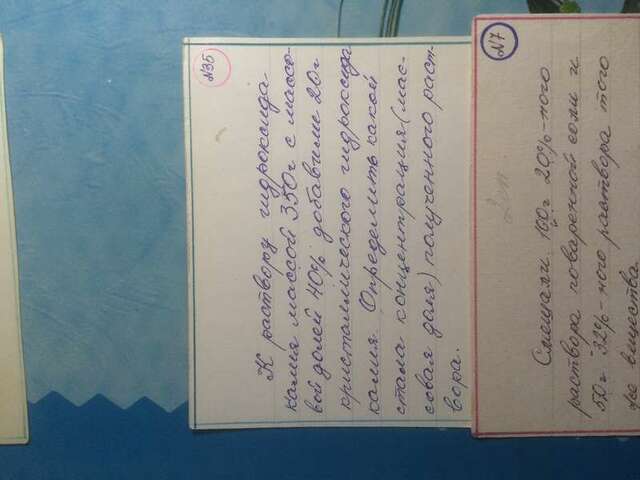 №35
К раствору гидроксида
калия массой 350г с массо-
вой долей 40% добавили 20г
кристаллического гидроксида
калия. Определить какой
стала концентрация (мас-
совая доля) полученного раст-
вора.
№7
Смешали 150г 20%-ного
раствора поваренной соли и
50г 32%-ного раствора того
же вещества.